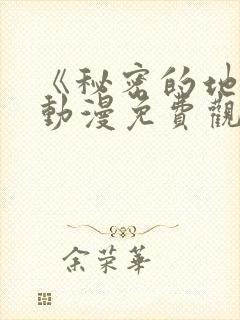 《秘密的地
動漫免費觀
余荣華